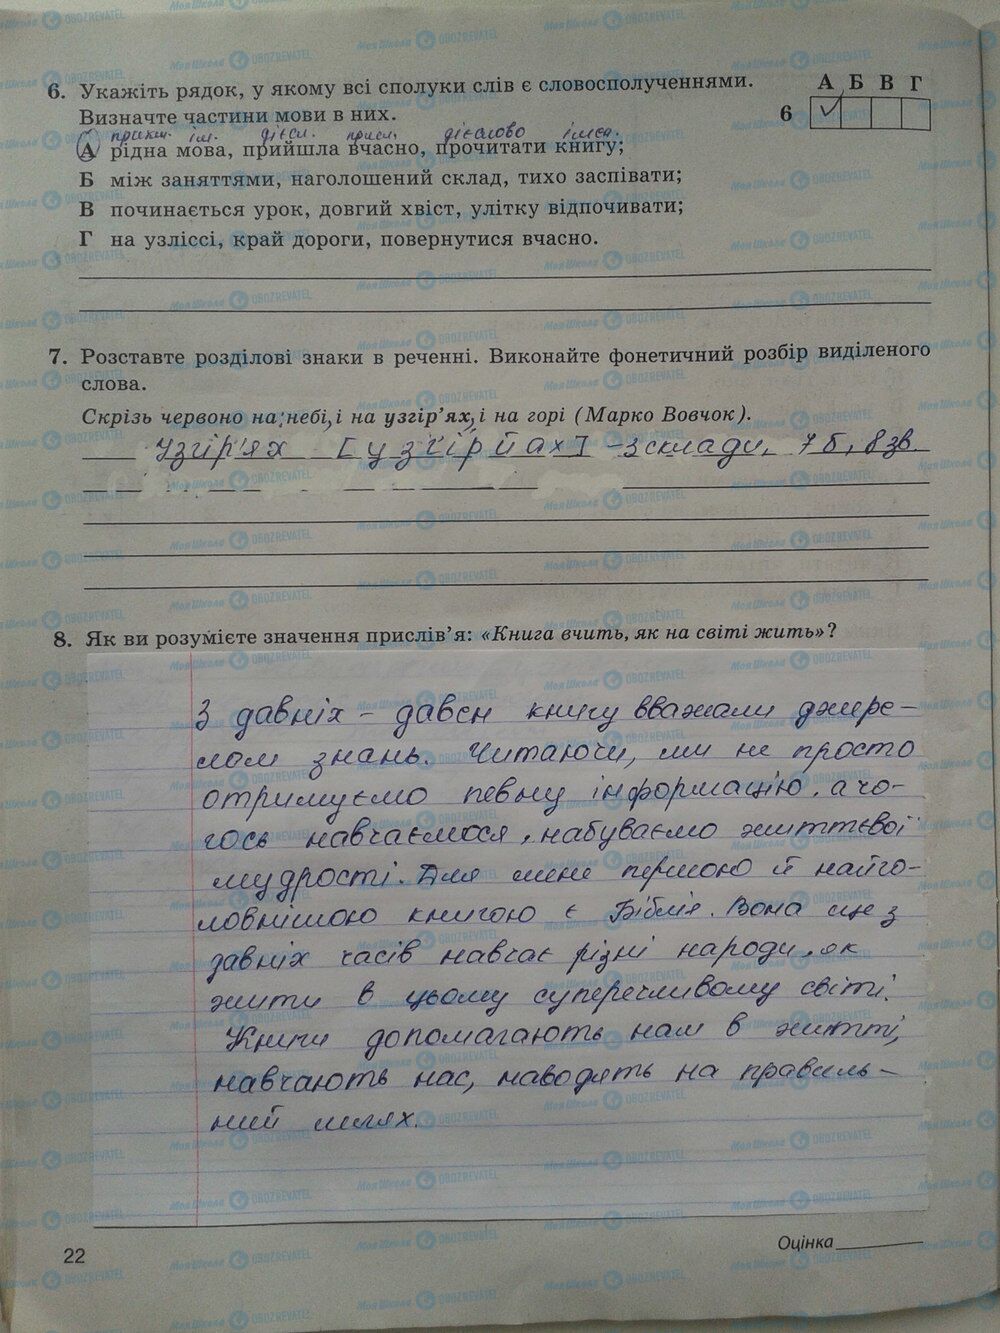 6. Укажіть рядок, у якому всі сполуки слів є словосполученнями.
Визначте частини мови в них.
А Б В Г
6
прикм. ім. дієсл. присл. дієслово імен.
А рідна мова, прийшла вчасно, прочитати книгу;
Б між заняттями, наголошений склад, тихо заспівати;
В починається урок, довгий хвіст, улітку відпочивати;
Г на узліссі, край дороги, повернутися вчасно.
7. Розставте розділові знаки в реченні. Виконайте фонетичний розбір виділеного
слова.
Скрізь червоно на небі, і на узгір’ях, і на горі (Марко Вовчок).
Узгір'ях [узг'ірйах] - 3 склади, 7 б, 8 зв.
8. Як ви розумієте значення прислів’я: «Книга вчить, як на світі жить»?
З давніх - давен книгу вважали джере-
лом знань. Читаючи, ми не просто
отримуємо певну інформацію, а чо-
гось навчаємося, набуваємо життєвої
мудрості. Для мене першою й найго-
ловнішою книгою є Біблія. Вона ще з
давніх часів навчає різні народи, як
жити в цьому суперечливому світі.
Книги допомагають нам в житті,
навчають нас, наводять на правиль-
ний шлях.
22
Оцінка
МояШкола OBOZREVATEL